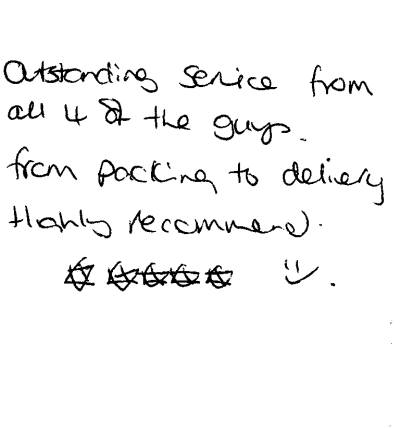 Outstanding service from
all 4 of the guys.
from packing to delivery
Highly recommend.
☆ ☆☆☆☆ :) .